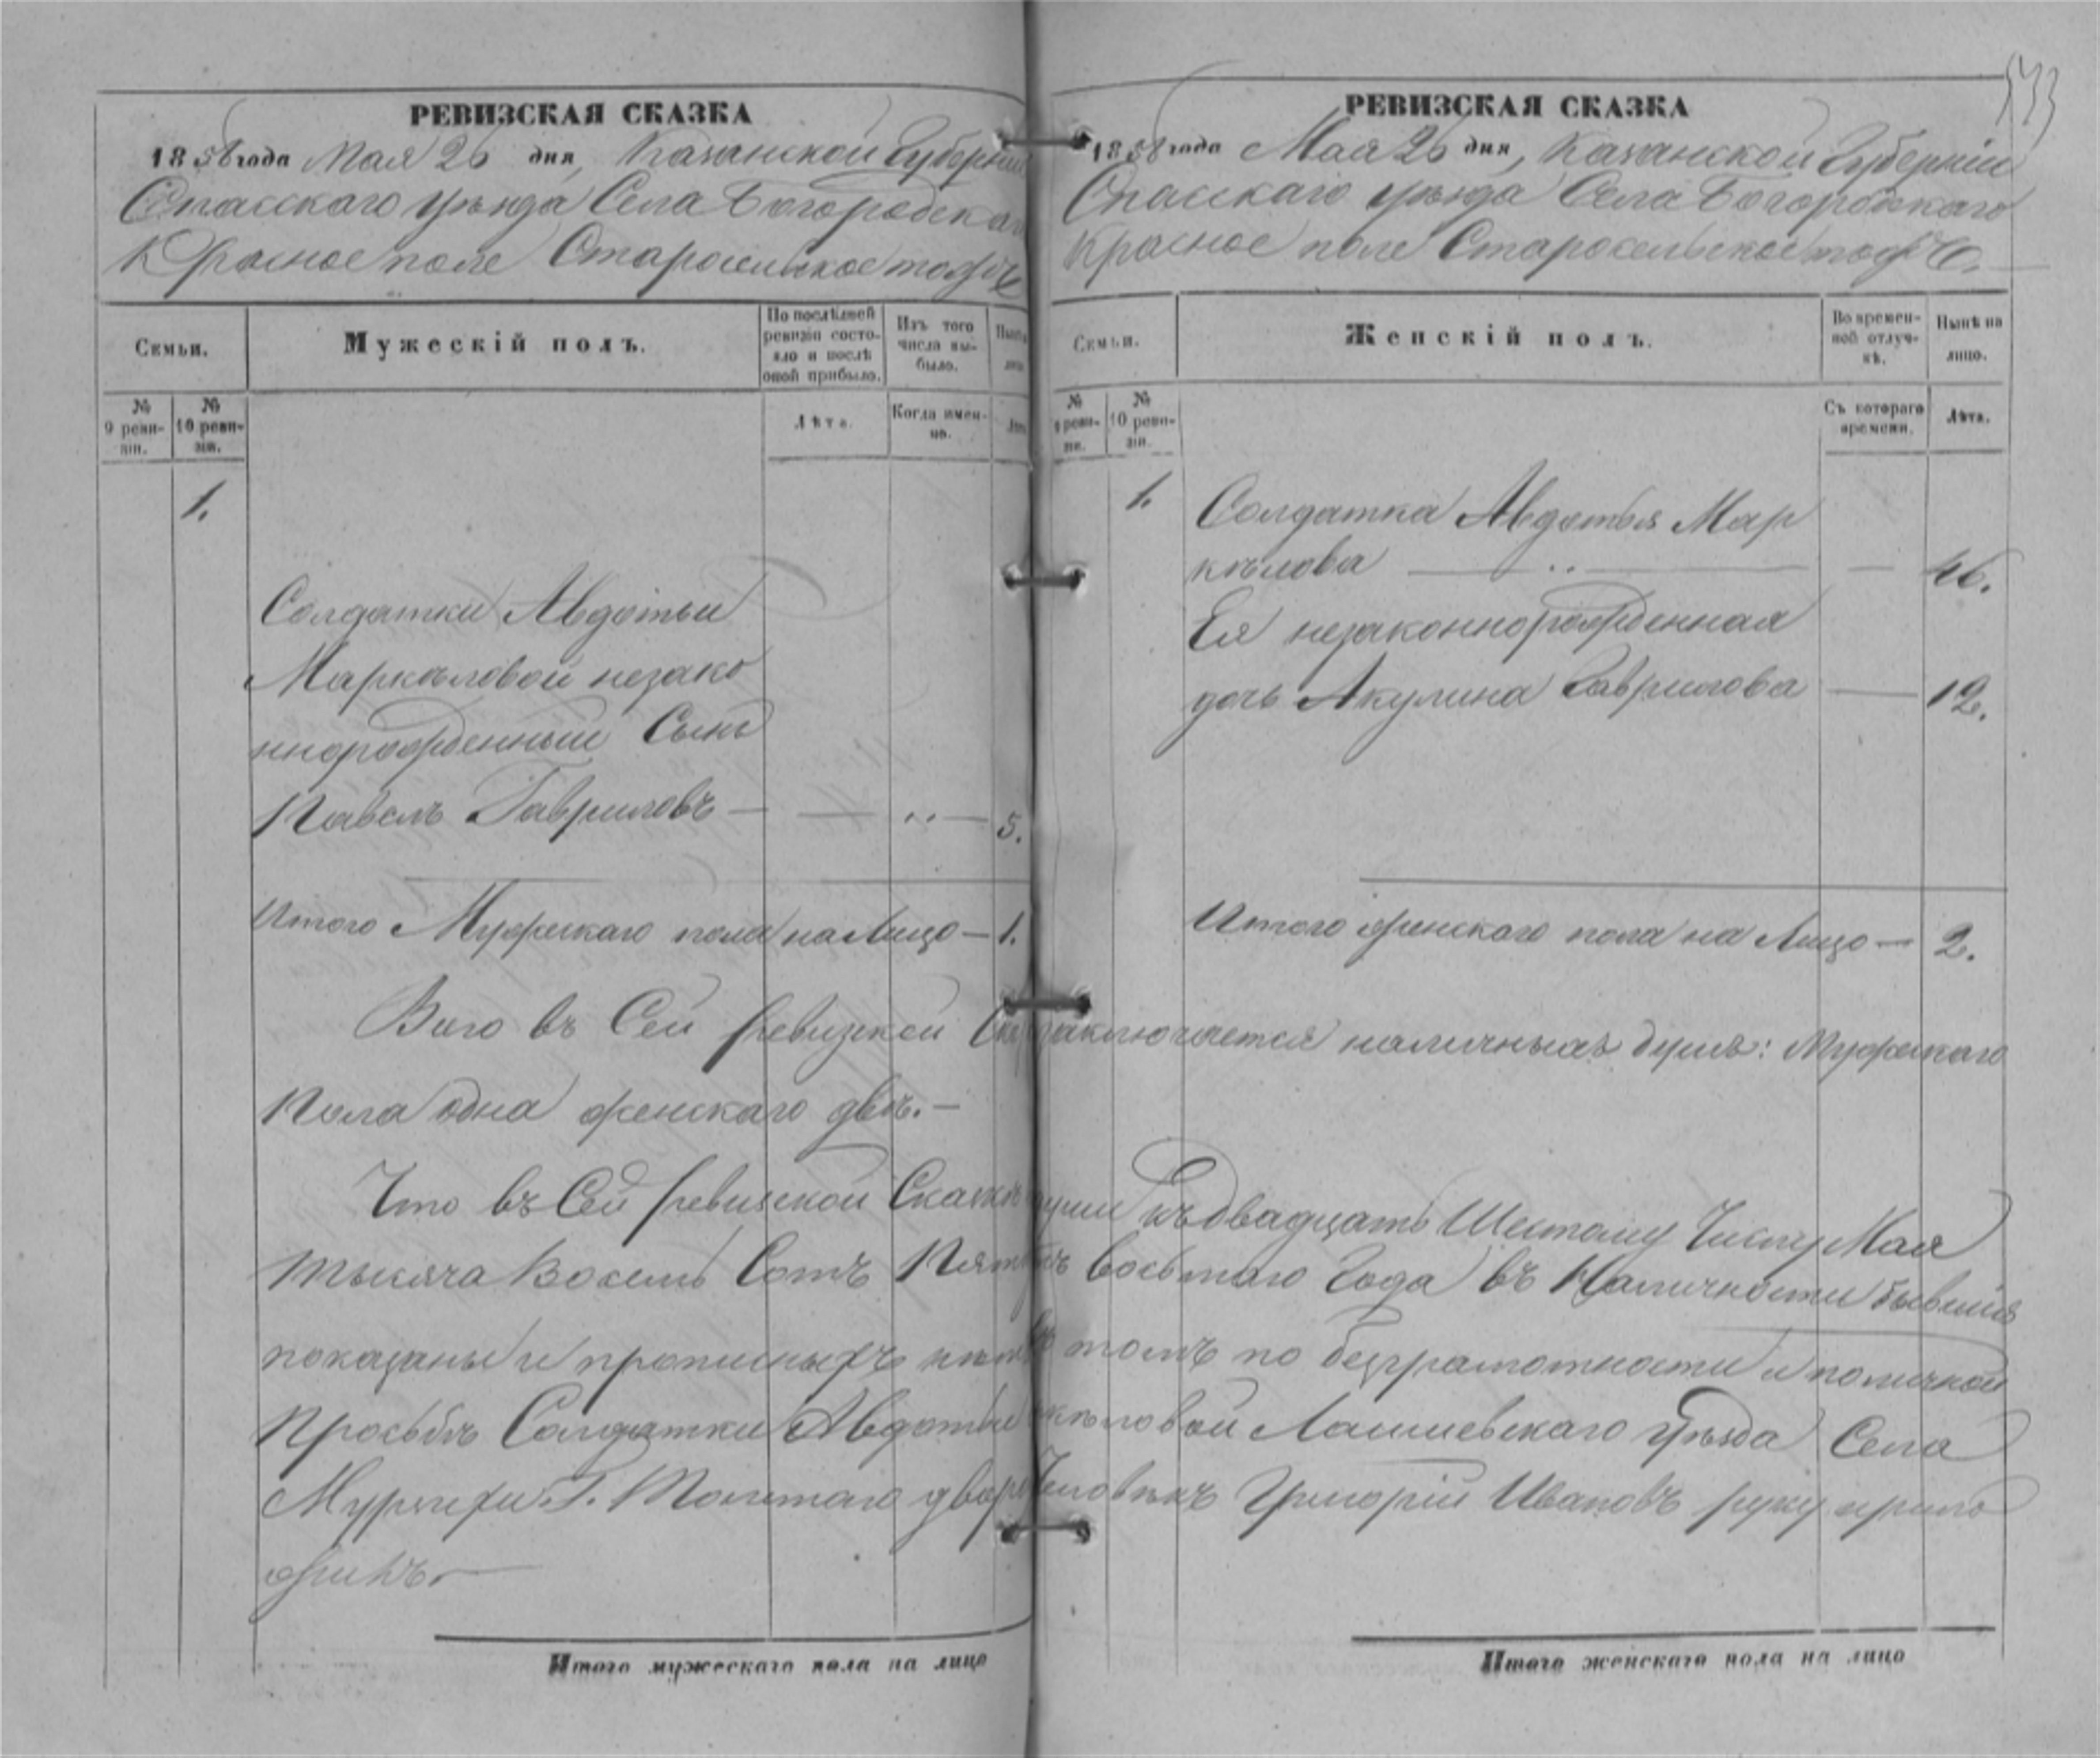 РЕВИЗСКАЯ СКАЗКА
1858 года Мая 26 дня, Казанской Губерніи
Спасскаго уѣзда Села Богородскаго
Красное поле Старосельское тожъ
Семьи.
Мужескій полъ.
По послѣдней ревизіи состояло и послѣ оной прибыло.
Изъ того числа выбыло.
№ 9 ревизіи.
№ 10 ревизіи.
Лѣта.
Когда именно.
1.
Солдатки Авдотьи
Маркѣловой незако
ннорожденный Сынъ
Павелъ Гавриловъ — — „ — 5.
Итого Мужескаго пола на Лицо — 1.
РЕВИЗСКАЯ СКАЗКА
1858 года Мая 26 дня, Казанской Губерніи
Спасскаго уѣзда Села Богородскаго
Красное поле Старосельское тожъ
Семьи.
Женскій полъ.
Во временной отлучкѣ.
Нынѣ на лицо.
№ 9 ревизіи.
№ 10 ревизіи.
Съ котораго времени.
Лѣта.
1.
Солдатка Авдотья Мар
кѣлова — „ — — 46.
Ея незаконнорожденная
дочь Акулина Гаврилова — 12.
Итого женскаго пола на Лицо — 2.
Всего въ Сей ревизской заключается наличныхъ душъ: Мужескаго
Пола одна женскаго двѣ. —
Что въ Сей ревизской Сказкѣ души къ двадцать Шестому Числу Мая
тысяча Восемь Сотъ Пятьдесятъ восьмаго Года въ Наличности бывшія
показаны и прописныхъ нѣтъ въ томъ по безграмотности и по личной
Просьбѣ Солдатки Авдотьи Маркѣловой Лаишевскаго уѣзда Села
Г. Толстаго дворо Человѣкъ Григорій Ивановъ руку прило
жилъ. —
Итого мужескаго пола на лицо
Итого женскаго пола на лицо